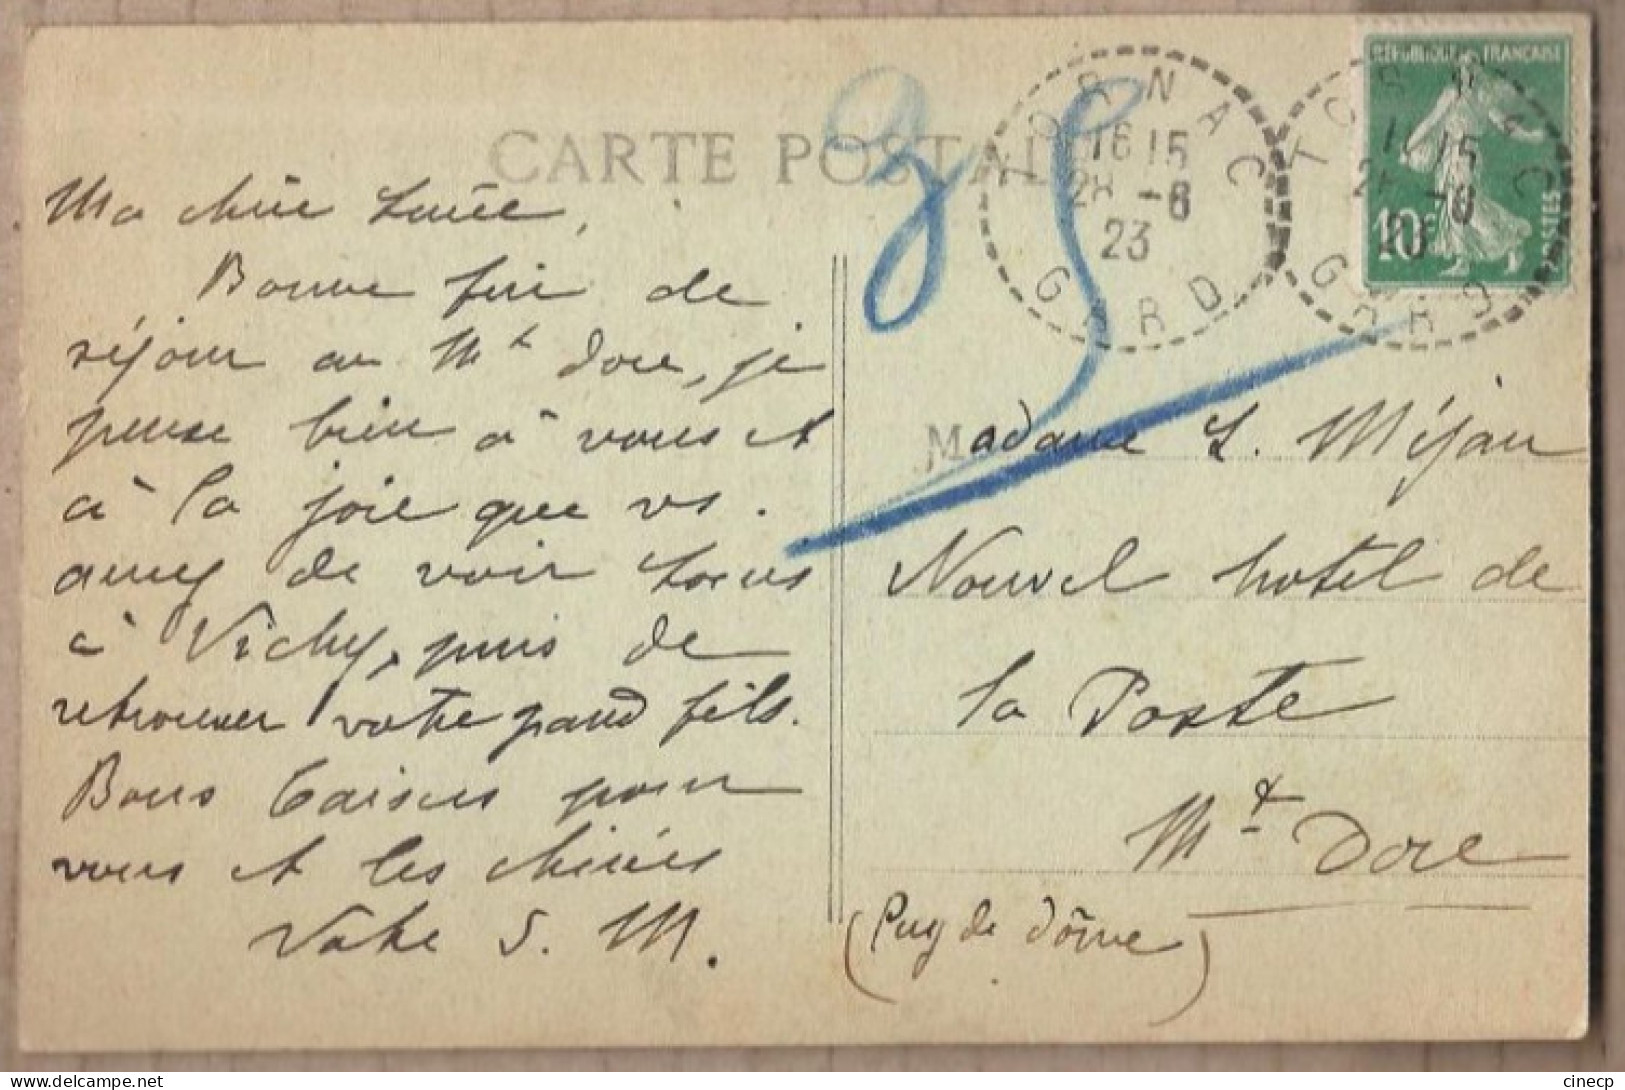 CARTE POSTALE
35
TORNAC
16 15
28 -8
23
GARD
RÉPUBLIQUE FRANÇAISE
10c
POSTES
Ma chère
Bonne fin de
séjour au Mt Dore, je
pense bien à vous et
à la joie que vs.
aurez de voir
à Vichy, puis de
retrouver votre grand fils.
Bons baisers pour
vous et les chéries
Votre S. M.
Madame L. Méjan
Nouvel hotel de
la Poste
Mt Dore
(Puy de Dôme)
cinecp